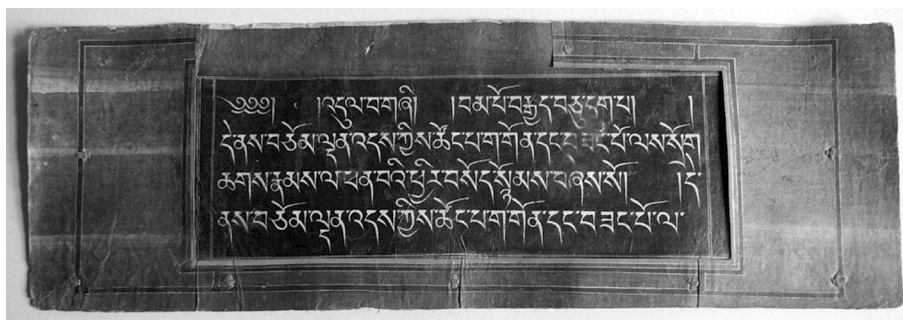 ༄༅༅། ། །འདུལ་བ་གཞི། །བམ་པོ་བརྒྱད་བཅུ་
དེ་ནས་བཅོམ་ལྡན་འདས་ཀྱིས་ཚོང་པ་ག་གོན་དང་བཟང་པོ་ལས་སོག
ཆགས་རྣམས་ལ་ཕན་བའི་ཕྱིར་བསོད་སྙོམས་བཞེས་སོ། །དེ་
ནས་བཅོམ་ལྡན་འདས་ཀྱིས་ཚོང་པ་ག་གོན་དང་བཟང་པོ་ལ་